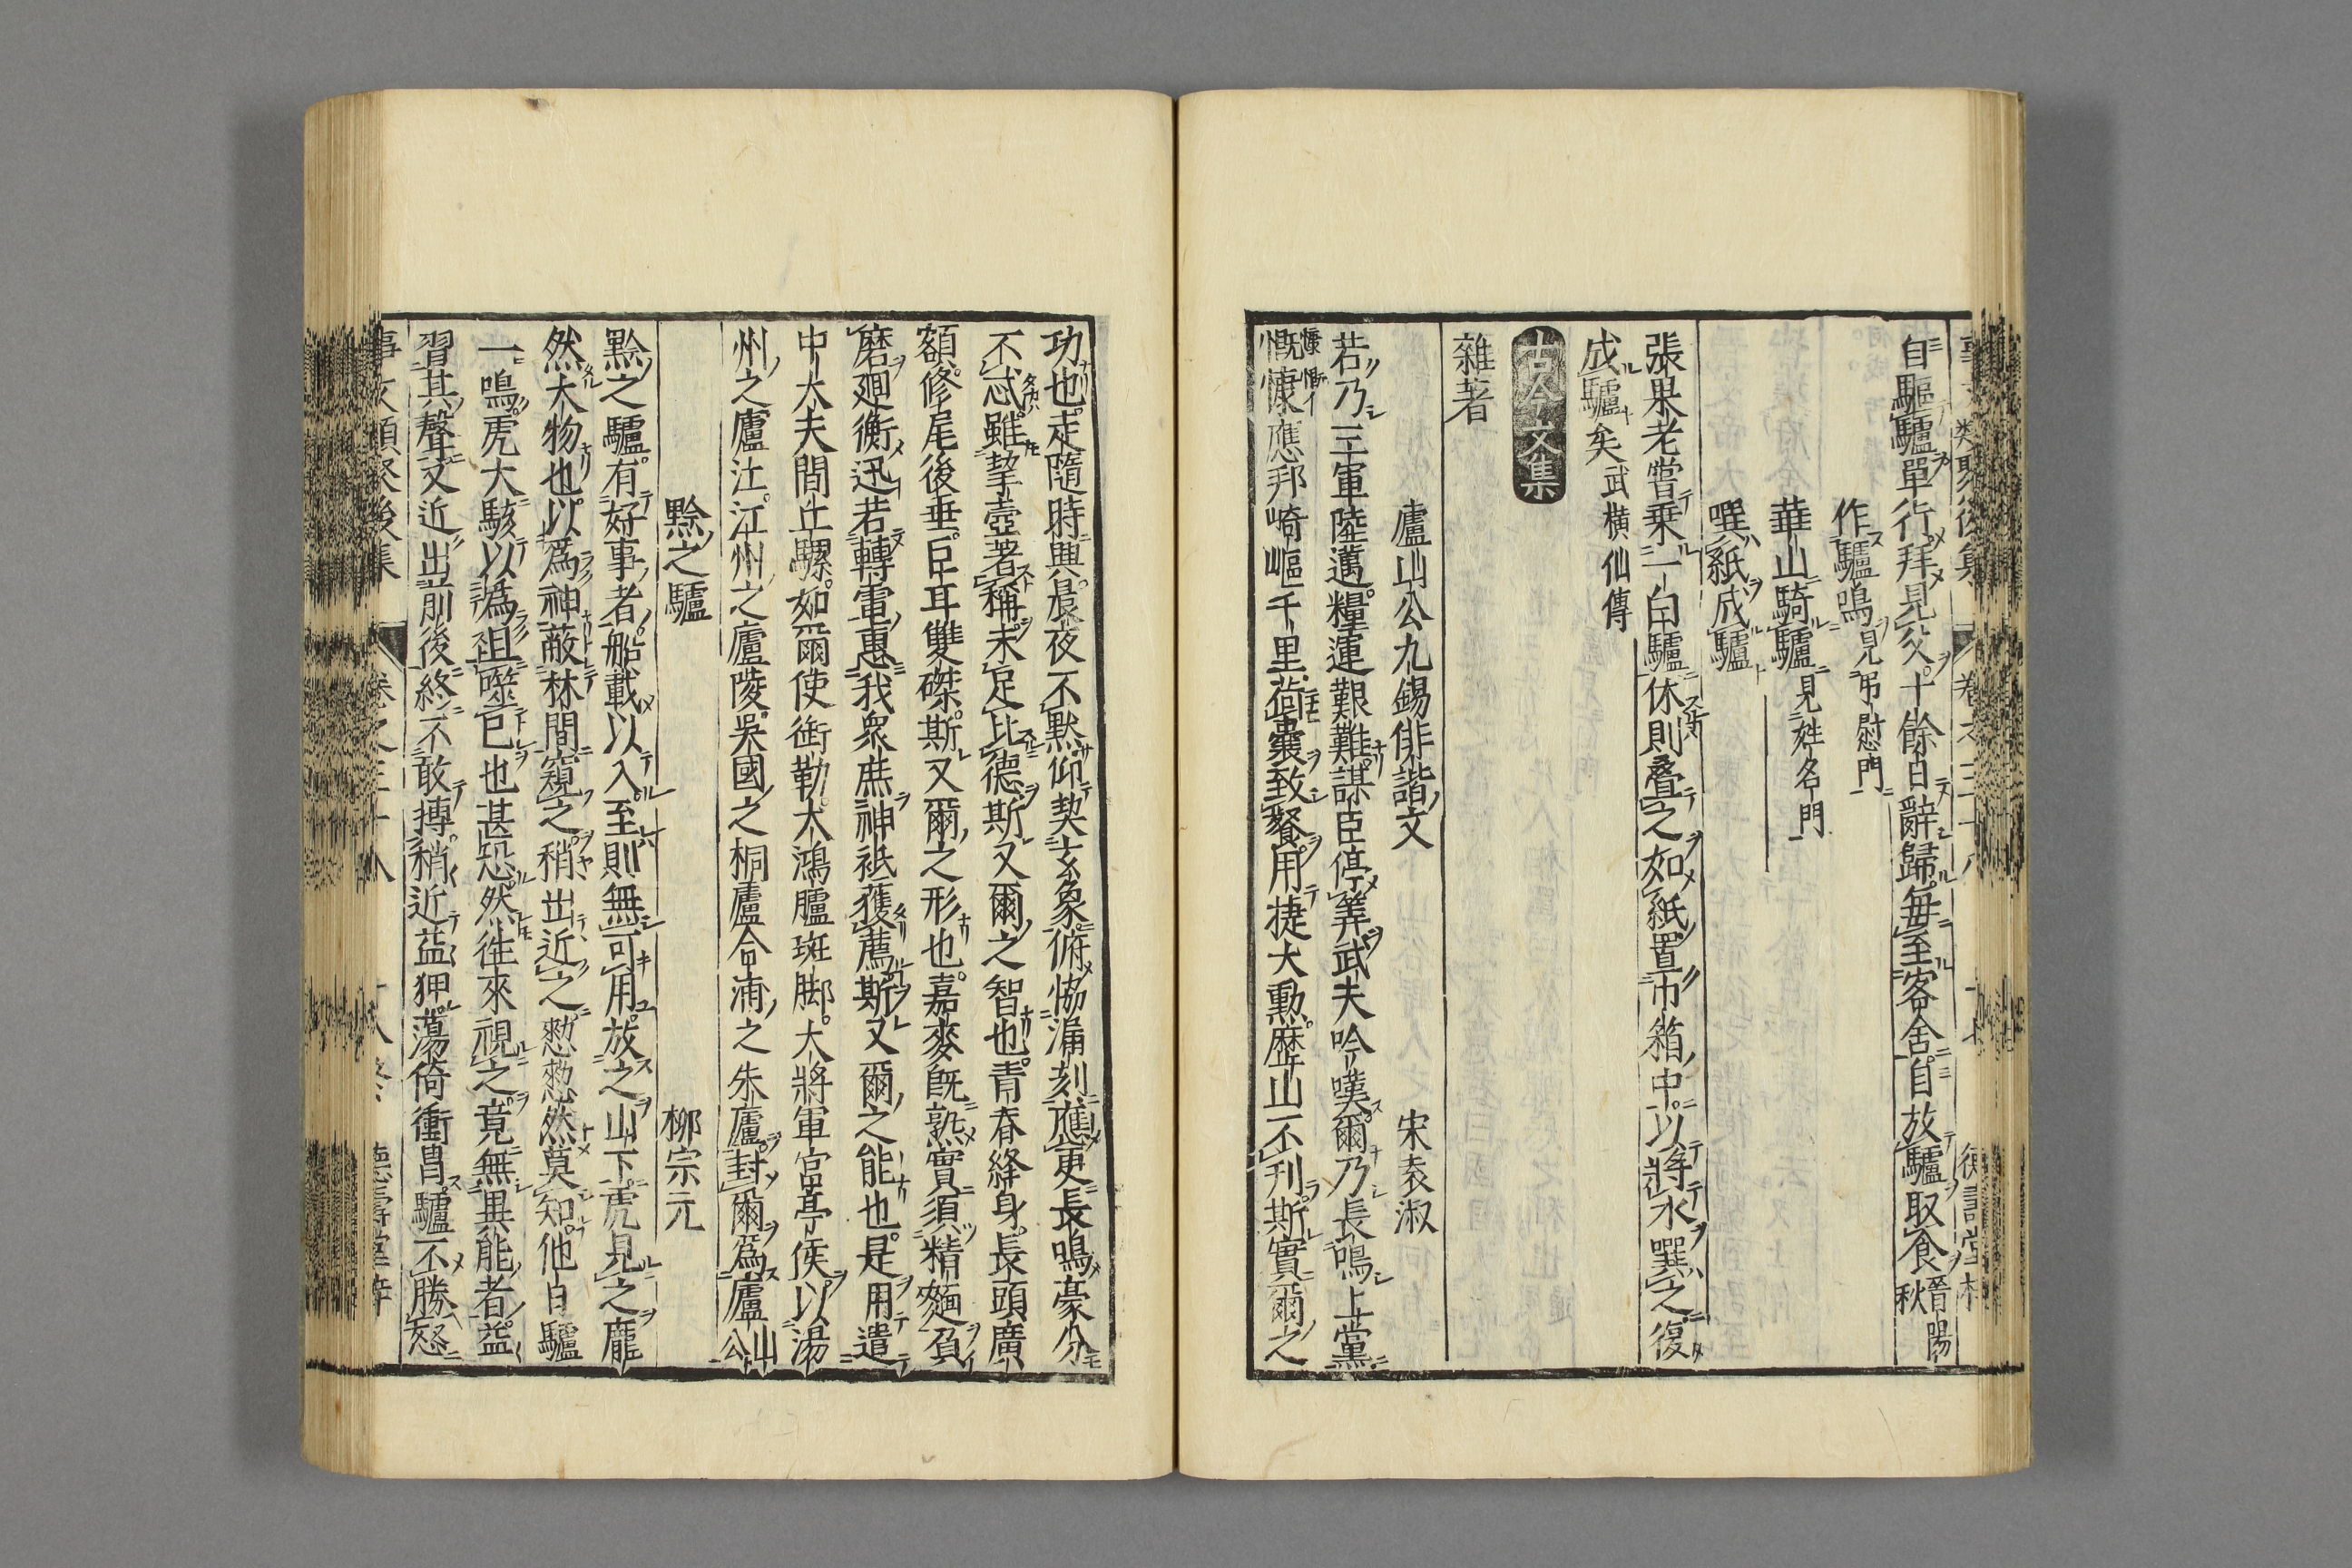 自驅驢單行拜見父十餘日辭歸毎至客舍自放驢取食晉陽秋
作驢鳴見吊慰門
華山騎驢見姓名門
噀紙成驢
張果老嘗乗一白驢休則疊之如紙置巾箱中以將水噀之復
成驢矣武橫仙傳
古今文集
雜著
廬山公九錫俳諧文 宋袁淑
若乃三軍陸邁糧運艱難謀臣停筭武夫吟嘆爾乃長鳴上黨
慨慷應邦崎嶇千里荷囊致餐用捷大勲歷山不刋斯實爾之
功也走隨時興晨夜不默仰契玄象俯恊漏刻應更長鳴豪分
不忒雖挈壺著稱未足比德斯又爾之智也青脊絳身長頭廣
額修尾後垂巨耳雙磔斯又爾之形也嘉麥旣熟實須精麺負
磨迴衡迅若轉電惠我衆庶神祇獲薦斯又爾之能也是用遣
中大夫閭丘騾如爾使銜勒大鴻臚斑脚大將軍宫亭侯以湯
州之廬江江州之廬陵吳國之桐廬合浦之朱廬封爾爲廬山公
黔之驢 柳宗元
黔之驢有好事者船載以入至則無可用放之山下虎見之龐
然大物也以爲神蔽林間窺之稍出近之憖憖然莫知他日驢
一鳴虎大駭以爲且噬已也甚恐然徃來視之竟無異能者益
習其聲又近出前後終不敢搏稍近益狎蕩倚衝冒驢不勝怒